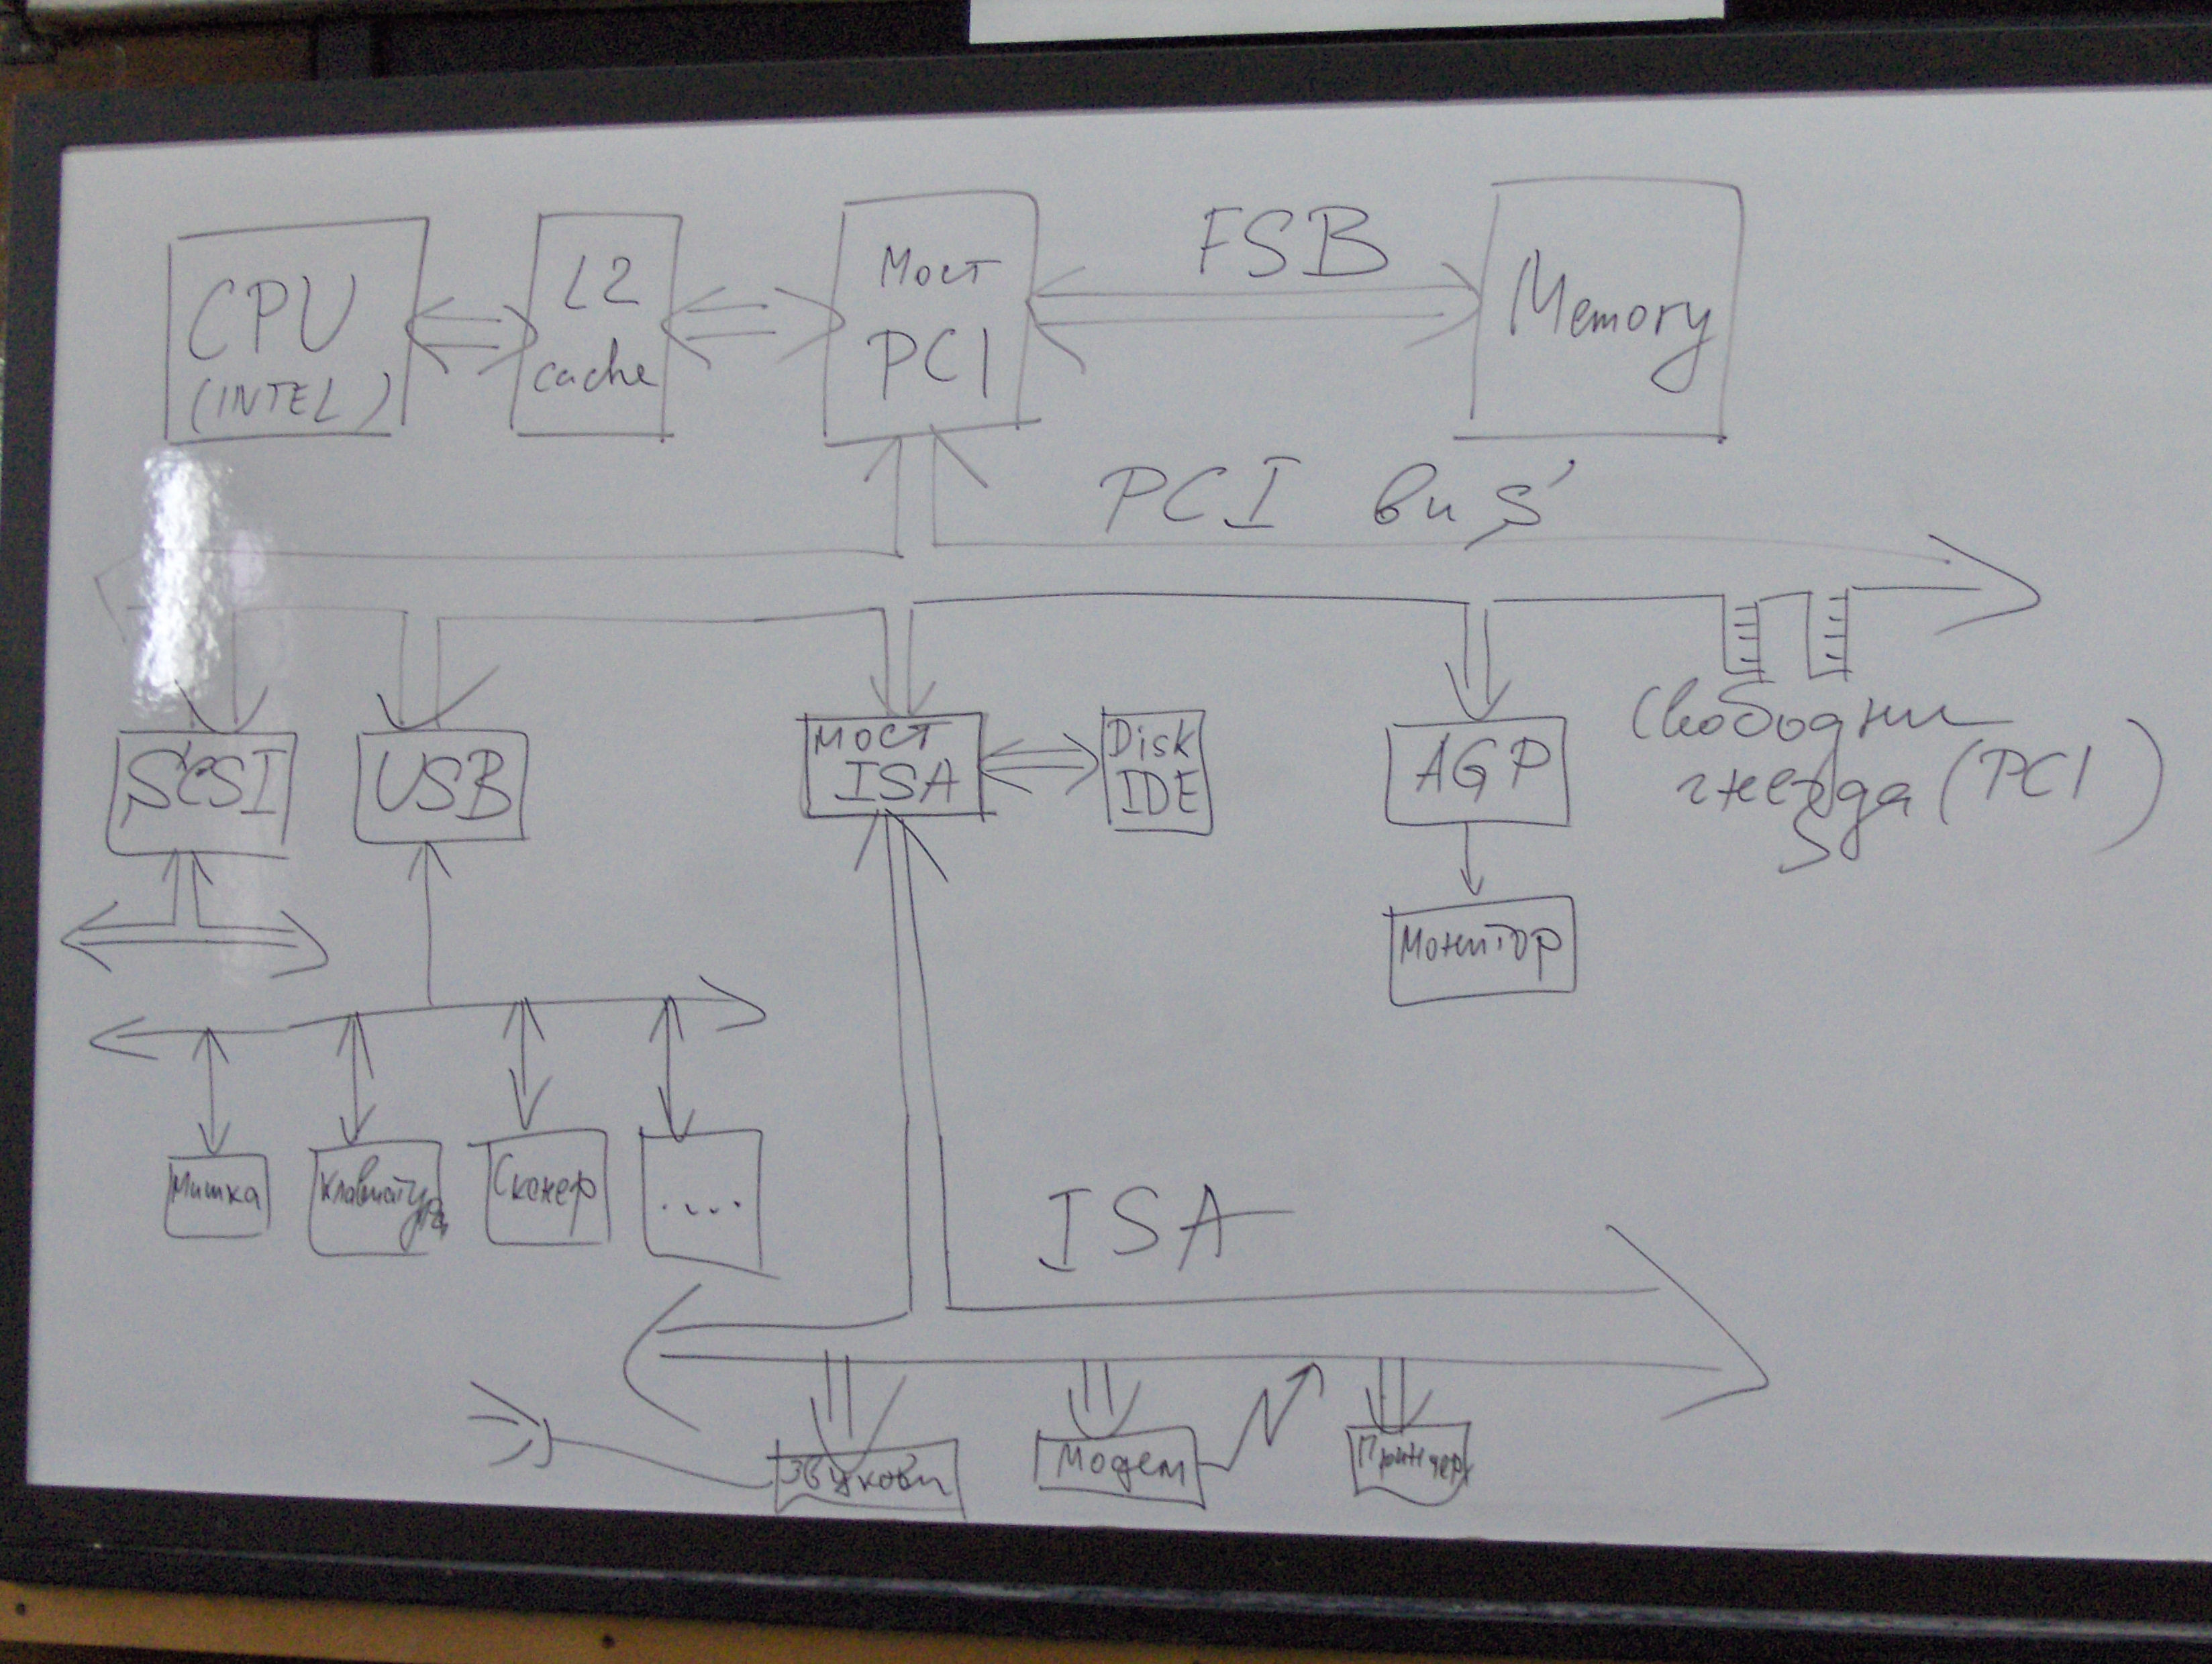 CPU
(INTEL)
L2
cache
Мост
PCI
FSB
Memory
PCI bus
SCSI
USB
мост
ISA
Disk
IDE
AGP
Свободни
гнезда (PCI)
Монитор
Мишка
Клавиатура
Скенер
....
ISA
Звукови
Модем
Принтер